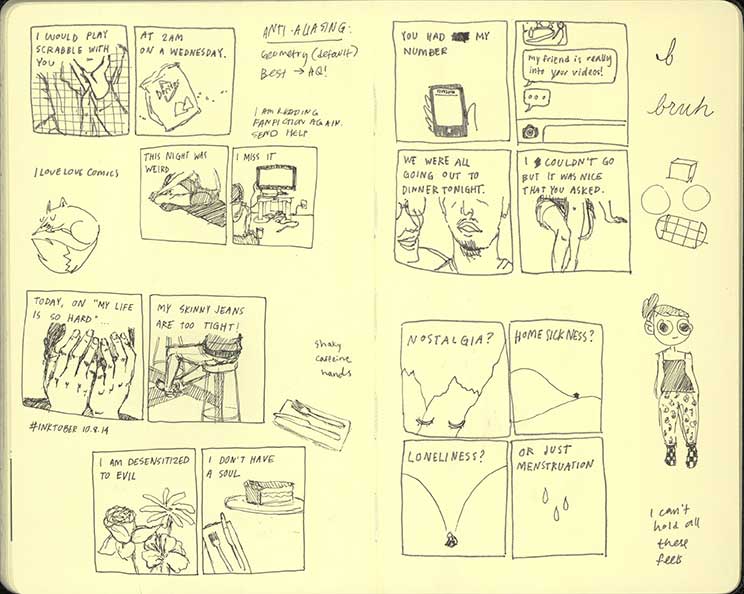 I WOULD PLAY
SCRABBLE WITH
YOU
AT 2AM
ON A WEDNESDAY.
ANTI-ALIASING:
Geometry (default)
BEST → HQ!
I AM READING
FANFICTION AGAIN.
SEND HELP
I LOVE LOVE COMICS
THIS NIGHT WAS
WEIRD
I MISS IT
TODAY, ON "MY LIFE
IS SO HARD"...
MY SKINNY JEANS
ARE TOO TIGHT!
shaky
caffeine
hands
#INKTOBER 10.8.14
I AM DESENSITIZED
TO EVIL
I DON'T HAVE
A SOUL
YOU HAD MY
NUMBER
my friend is really
into your videos!
WE WERE ALL
GOING OUT TO
DINNER TONIGHT.
I COULDN'T GO
BUT IT WAS NICE
THAT YOU ASKED.
b
bruh
NOSTALGIA?
HOMESICKNESS?
LONELINESS?
OR JUST
MENSTRUATION
I can't
hold all
these
feels